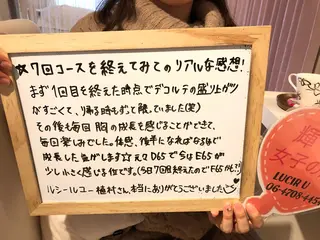 ☆7回コースを終えてみてのリアルな感想!
まず1回目を終えた時点でデコルテの盛り上がり
がすごくて、帰る時もずっと触っていました(笑)
その後も毎回胸の成長を感じることができて、
毎回楽しみでした。体感、後半になればなるほど
成長した気がします☆元々D65で今はE65が
少し小さく感じる位です。(今日7回目終えたのでF65かも?!)
ルシールユー 植村さん、本当にありがとうございました
輝
女子の
LUCIR U
06-4708-445